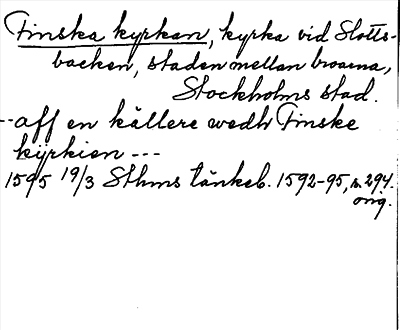 Finska kyrkan, kyrka vid Slotts-
backen, staden mellan broarna,
Stockholms stad.
--aff en källere wedh Finske
kÿrkien ---
1595 19/3 Sthms tänkeb. 1592-95, s. 294.
orig.